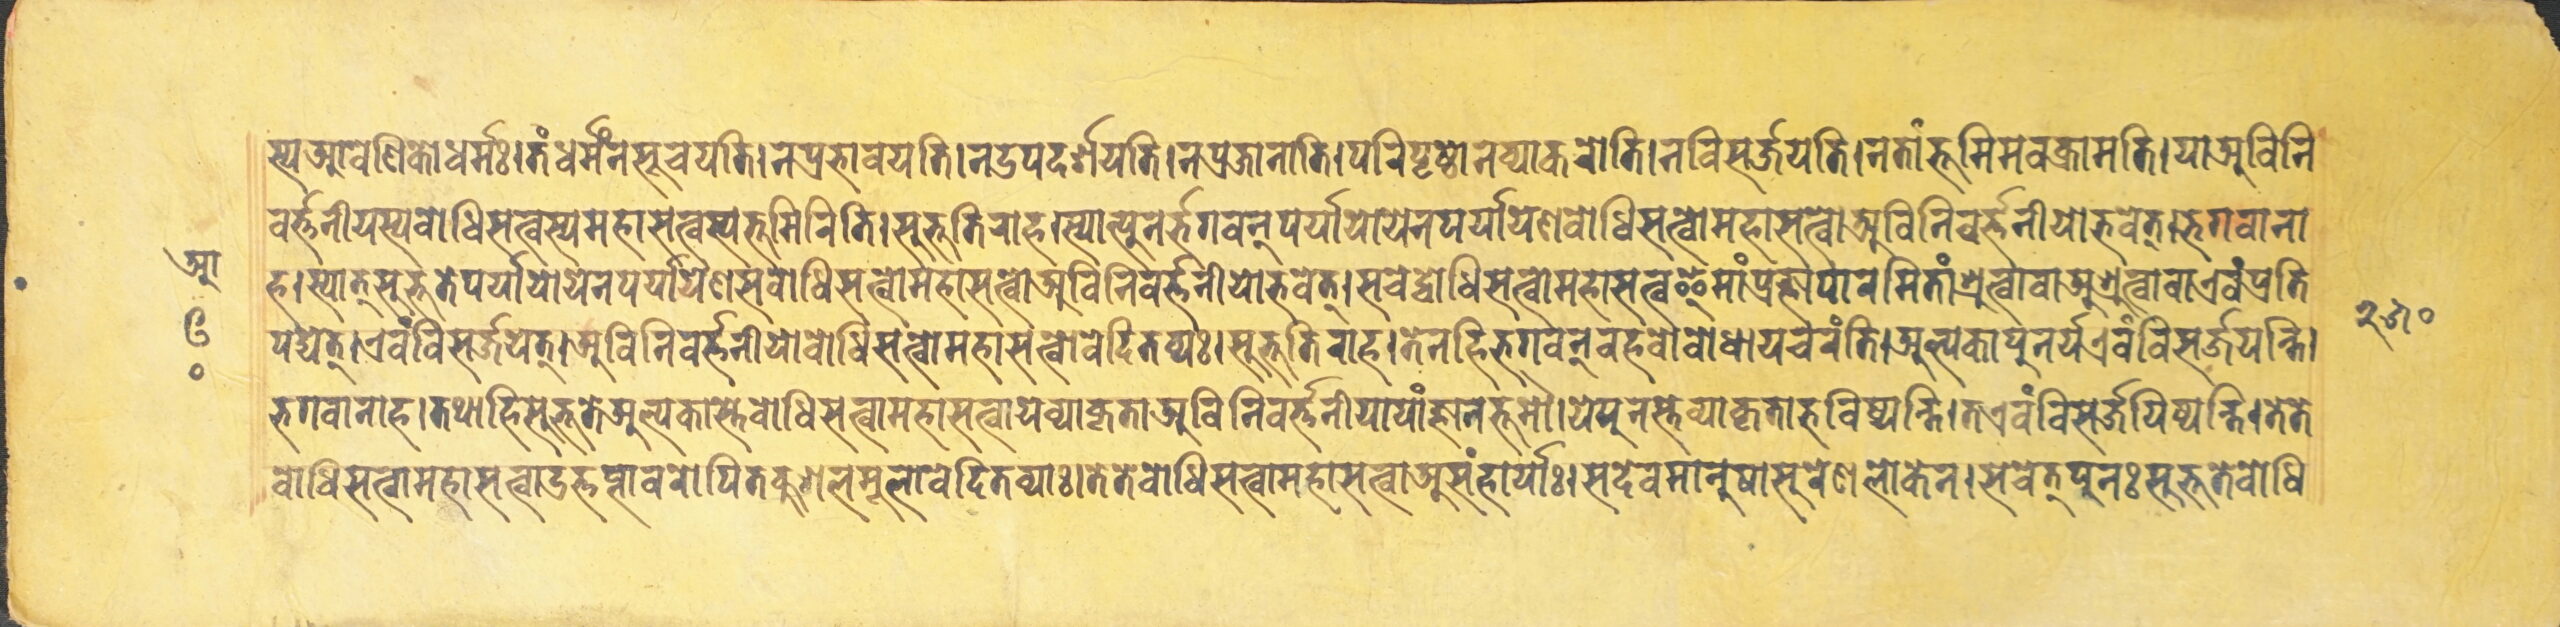 स्य आवेणिको धर्मः। तं धर्मं न सूचयति। न प्रभावयति। न उपदर्शयति। न प्रजानाति। परिपृष्टो न व्याकरोति। न विसर्जयति। न तां भूमिमवक्रामति। या अविनि
वर्त्तनीयस्य बोधिसत्वस्य महासत्वस्य भूमिरिति। सुभूतिराह। स्यात्पुनर्भगवन् पर्यायो येन पर्यायेण बोधिसत्वो महासत्वो अविनिवर्त्तनीयो भवेत्। भगवाना
ह। स्यात् सुभूते पर्यायो येन पर्यायेण स बोधिसत्वो महासत्वो अविनिवर्त्तनीयो भवेत्। सचेद्बोधिसत्वो महासत्व इमां प्रज्ञापारमितां श्रुत्वा वा अश्रुत्वा वा एवं प्रति
पद्येत्। एवं विसर्जयेत्। अविनिवर्त्तनीयो बोधिसत्वो महासत्वो वेदितव्यः। सुभूतिराह। तेन हि भगवन् बहवो बोधाय चरंति। अल्पका पुनर्य एवं विसर्जयन्ति।
भगवानाह। तथा हि सुभूते अल्पकास्ते बोधिसत्वा महासत्वा ये व्याकृता अविनिवर्त्तनीयायां ज्ञानभूमौ। ये पुनस्ते व्याकृता भविष्यन्ति। त एवं विसर्जयिष्यन्ति। ते ते
बोधिसत्वा महासत्वा उत्तप्तावरोपितकुशलमूला वेदितव्याः। ते ते बोधिसत्वा महासत्वा असंहार्याः। सदेवमानुषासुरेण लोकेन। सचेत् पुनः सुभूते बोधि
आ
२७०